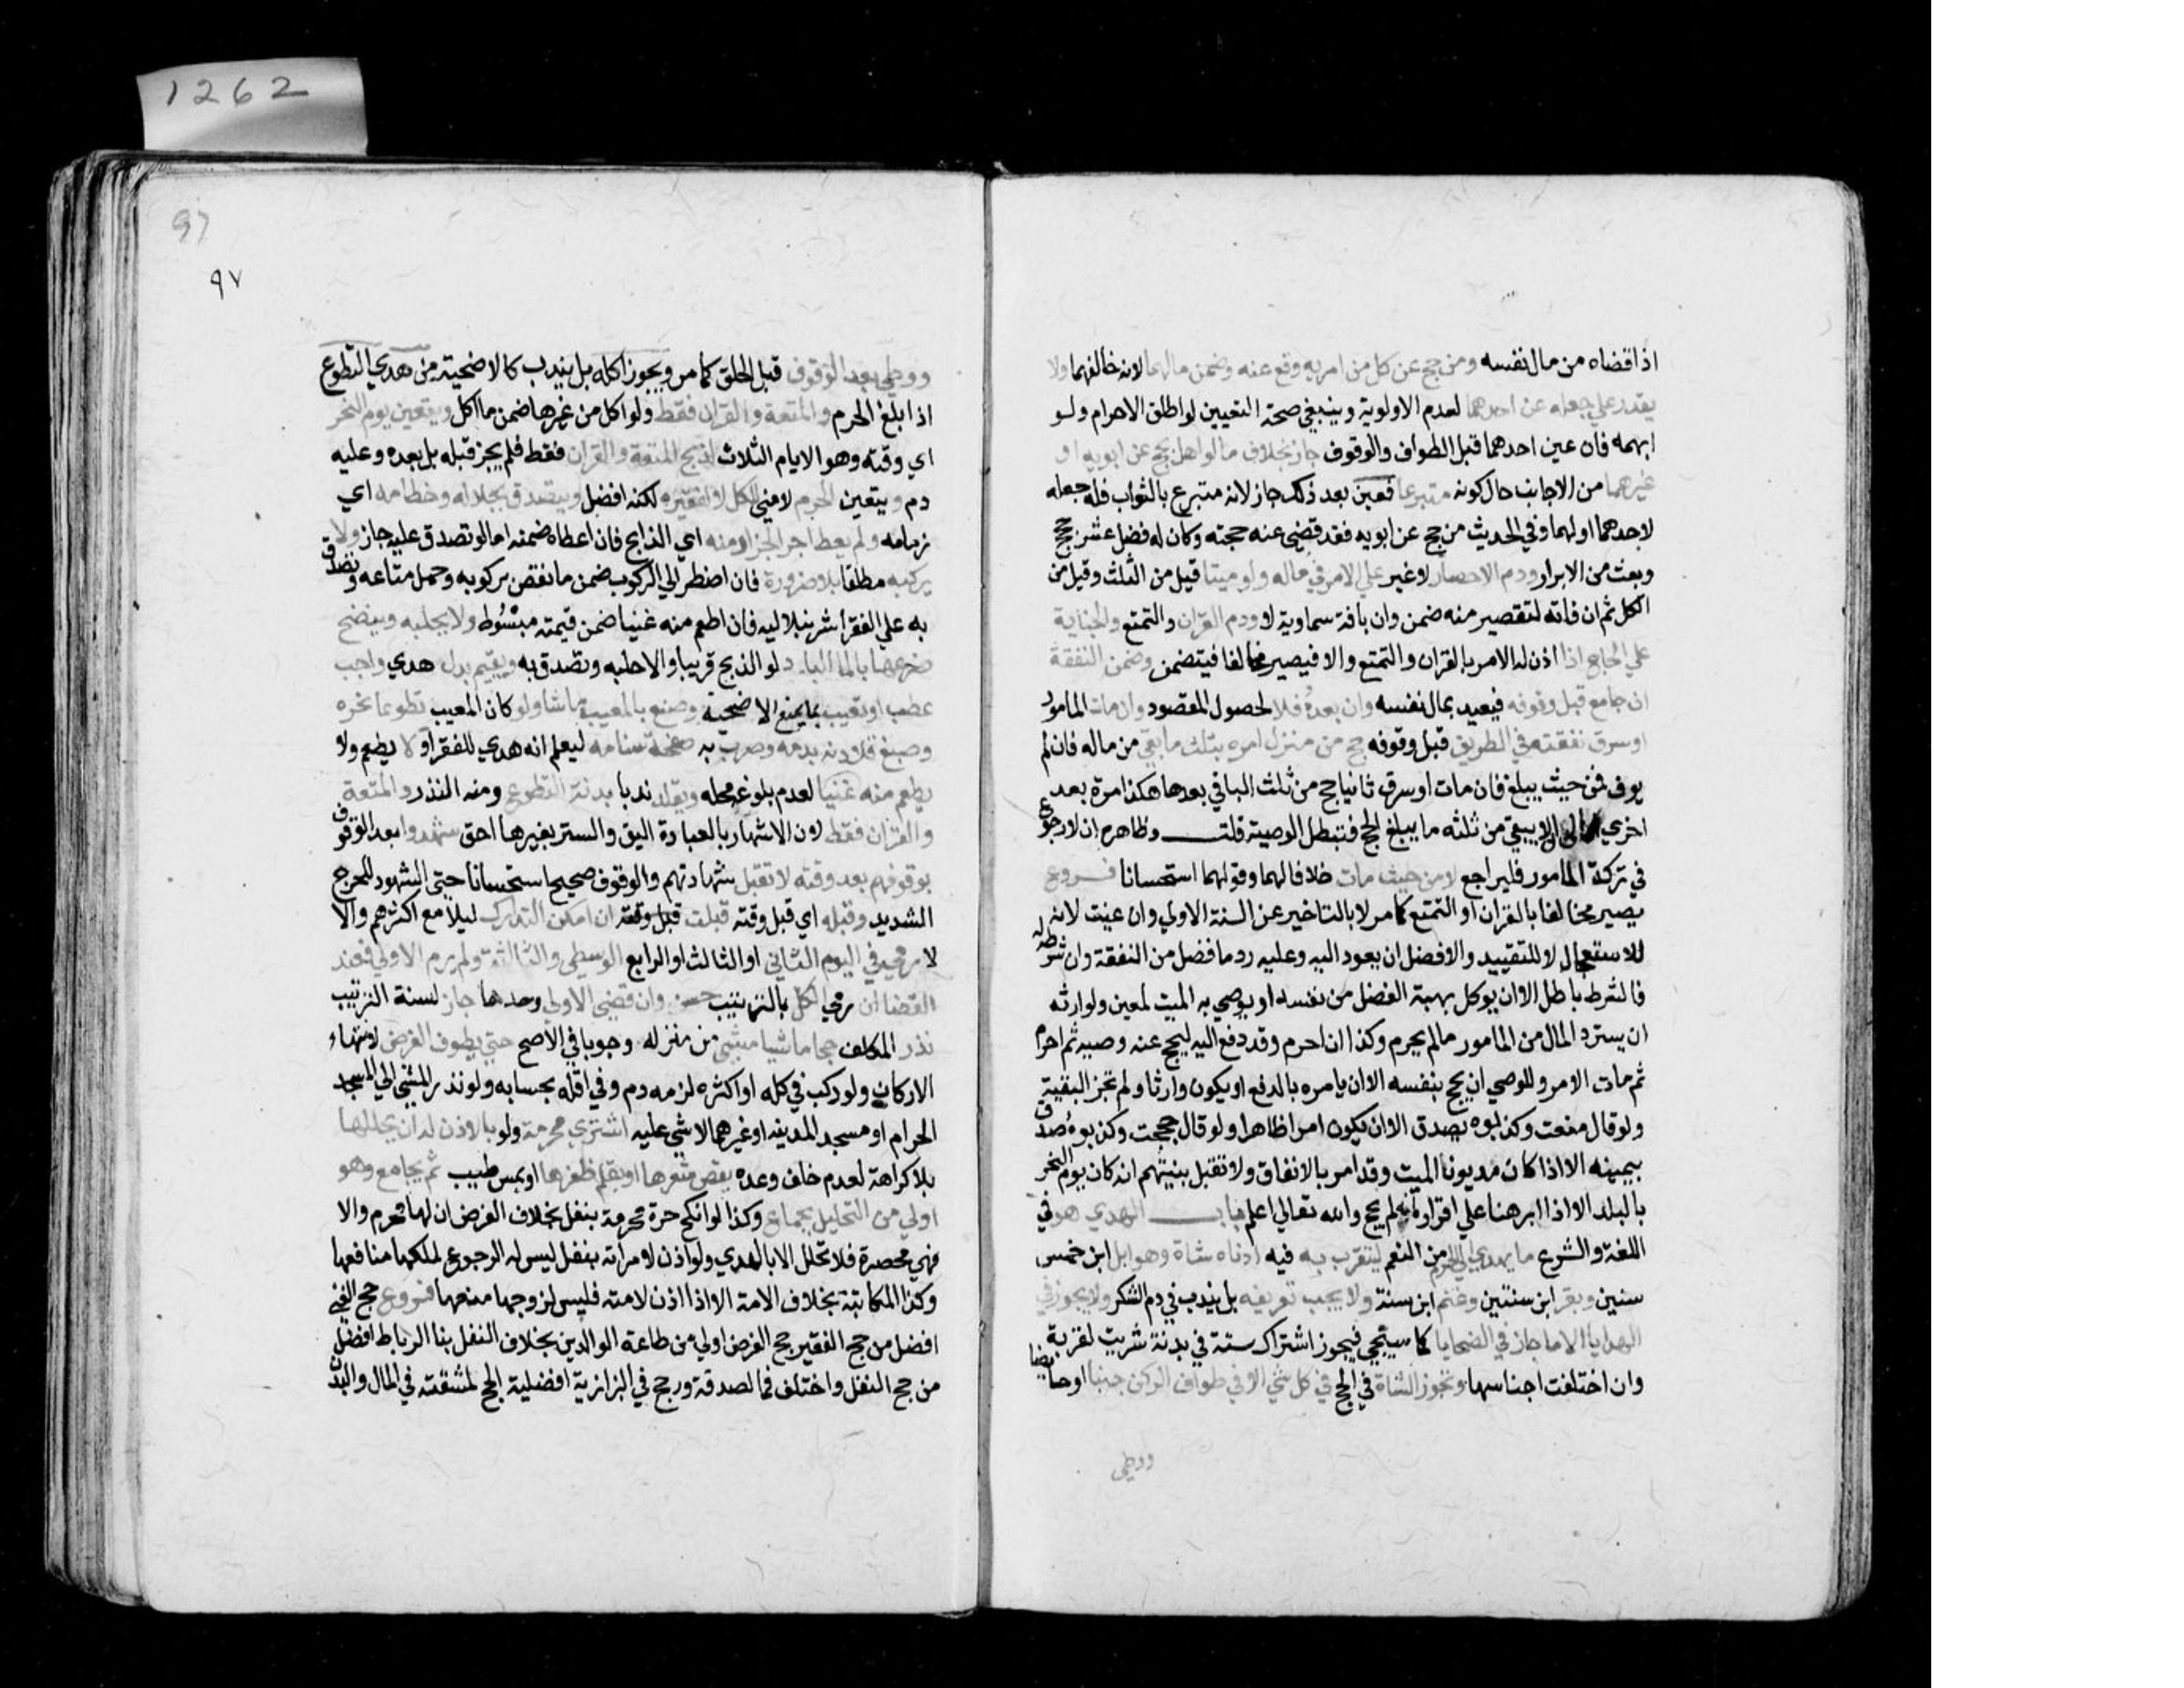 1262
اذا قضاه من مال نفسه ومن حج عن كل من امريه وقع عنه وضمن مالهما لانه خالفهما ولا
يقدر علي جعله عن احدهما لعدم الاولوية وينبغي صحة التعيين لو اطلق الاهرام ولو
ابهمه فان عين احدهما قبل الطواف والوقوف جاز بخلاف ما لو اهل بحج عن ابويه او
غيرهما من الاجانب حال كونه متبرعا فعين بعد ذلك جاز لانه متبرع بالثواب فله جعله
لاحدهما او لهما وفي الحديث من حج عن ابويه فقد قضي عنه حجته وكان له فضل عشر حجج
وبعث من الابرار ودم الاحصار لا غير علي الامر في ماله ولو ميتا قيل من الثلث وقيل من
الكل ثم ان فاته لتقصير منه ضمن وان بافة سماوية لا ودم القران والتمتع والجناية
علي الحاج اذا اذن له الامر بالقران والتمتع والا فيصير مخالفا فيتضمن وضمن النفقة
ان جامع قبل وقوفه فيعيد بمال نفسه وان بعده فلا لحصول المقصود وان مات المامور
او سرق نفقته في الطريق قبل وقوفه حج من منزل امره بثلث ما بقي من ماله فان لم
يوف فمن حيث يبلغ فان مات او سرق ثانيا حج من ثلث الباقي بعدها هكذا مرة بعد
اخري الي ان لا يبقي من ثلثه ما يبلغ الحج فتبطل الوصية قلت وظاهره ان لا رجوع
في تركة المامور فليراجع لا من حيث مات خلافا لهما وقولهما استحسانا فروع
يصير مخالفا بالقران او التمتع كما مر لا بالتاخير عن السنة الاولي وان عينت لانه
للاستعجال لا للتقييد والافضل ان يعود اليه وعليه رد ما فضل من النفقة وان شرطه له
فالشرط باطل الا ان يوكل بهبة الفضل من نفسه او يوصي به الميت لمعين ولوارثه
ان يسترد المال من المامور ما لم يحرم وكذا ان احرم وقد دفع اليه ليحج عنه وصيه ثم احرم
ثم مات الامر وللوصي ان يحج بنفسه الا ان يامره بالدفع او يكون وارثا ولم تجز البقية
ولو قال منعت وكذبوه يصدق الا ان يكون امرا ظاهرا ولو قال حججت وكذبوه صدق
بيمينه الا اذا كان مديونا الميت وقد امر بالانفاق ولا تقبل بينتهم انه كان يوم النحر
بالبلد الا اذا ابرهنا علي اقراره انه لم يحج والله تعالي اعلم باب الهدي هو في
اللغة والشرع ما يهدي الي الحرم من النعم ليتقرب به فيه ادناه شاة وهو ابل ابن خمس
سنين وبقر ابن سنتين وغنم ابن سنة ولا يجب تعريفه بل يندب في دم الشكر ولا يجوز في
الهدايا الا ما جاز في الضحايا كما سيجي فيجوز اشتراك ستة في بدنة شريت لقربة
وان اختلفت اجناسها وتجوز الشاة في الحج في كل شي الا في طواف الركن جنبا او حايضا
ووطي
97
٩٧
ووطي بعد الوقوف قبل الحلق كما مر ويجوز اكله بل يندب كالاضحية من هدي التطوع
اذا بلغ الحرم والمتعة والقران فقط ولو اكل من غيرها ضمن ما اكل ويتعين يوم النحر
اي وقته وهو الايام الثلاث لذبح المتعة والقران فقط فلم يجز قبله بل بعده وعليه
دم ويتعين الحرم لا مني للكل لا لفقيره لكنه افضل ويتصدق بجلاله وخطامه اي
زمامه ولم يعط اجر الجزار منه اي الذابح فان اعطاه ضمنه اما لو تصدق عليه جاز ولا
يركبه مطلقا بلا ضرورة فان اضطر الي الركوب ضمن ما نقص بركوبه وحمل متاعه وتصدق
به علي الفقرا شرنبلاليه فان اطعم منه غنيا ضمن قيمته مبسوط ولا يحلبه وينضح
ضرعها بالما البارد لو الذبح قريبا والا حلبه وتصدق به ويقيم بدل هدي واجب
عطب او تعيب بما يمنع الاضحية وصنع بالمعيب ما شا ولو كان المعيب تطوعا نحره
وصبغ قلادته بدمه وضرب به صفحة سنامه ليعلم انه هدي للفقرا ولا يطعم ولا
يطعم منه غنيا لعدم بلوغه محله ويقلد ندبا بدنة التطوع ومنه النذر والمتعة
والقران فقط لان الاشتهار بالعبادة اليق والستر بغيرها احق شهدوا بعد الوقوف
بوقوفهم بعد وقته لا تقبل شهادتهم والوقوف صحيح استحسانا حتي الشهود للحرج
الشديد وقبله اي قبل وقته قبلت قبل وقته ان امكن التدارك ليلا مع اكثرهم والا
لا رمي في اليوم الثاني او الثالث او الرابع الوسطي والثالثة ولم يرم الاولي فعند
القضا ان رمي الكل بالترتيب حسن وان قضي الاولي وحدها جاز لسنة الترتيب
نذر المكلف حجا ماشيا مشي من منزله وجوبا في الاصح حتي يطوف الفرض لانتهاء
الاركان ولو ركب في كله او اكثره لزمه دم وفي اقله بحسابه ولو نذر المشي الي المسجد
الحرام او مسجد المدينه او غيرهما لا شي عليه اشتري محرمة ولو بالاذن له ان يحللها
بلا كراهة لعدم خلف وعده بقص شعرها او بقلم ظفرها او بمس طيب ثم يجامع وهو
اولي من التحليل بجماع وكذا لو انكح حرة محرمة بنفل بخلاف الفرض ان لها محرم والا
فهي محصرة فلا تحلل الا بالهدي ولو اذن لامراته بنفل ليس له الرجوع لملكها منافعها
وكذا المكاتبة بخلاف الامة الا اذا اذن لامته فليس لزوجها منعها فروع حج الغني
افضل من حج الفقير حج الفرض اولي من طاعة الوالدين بخلاف النفل بنا الرباط افضل
من حج النفل واختلف في الصدقة ورجح في البزازية افضلية الحج لمشقته في المال والبدن